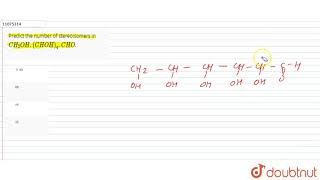 11075314
Predict the number of stereoisomers in
CH2OH.(CHOH)4.CHO.
CH2 - CH - CH - CH - CH - C - H
OH OH OH OH OH O
doubtnut